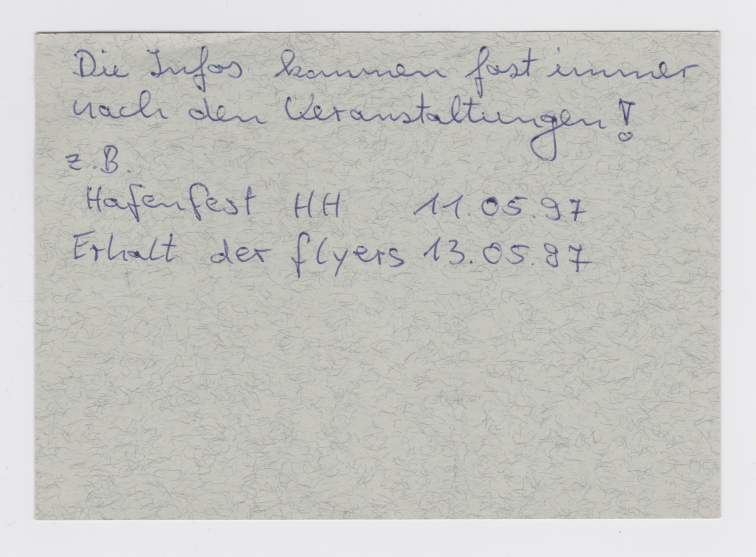 Die Infos kommen fast immer
nach den Veranstaltungen!
z.B.
Hafenfest HH 11.05.97
Erhalt der flyers 13.05.97